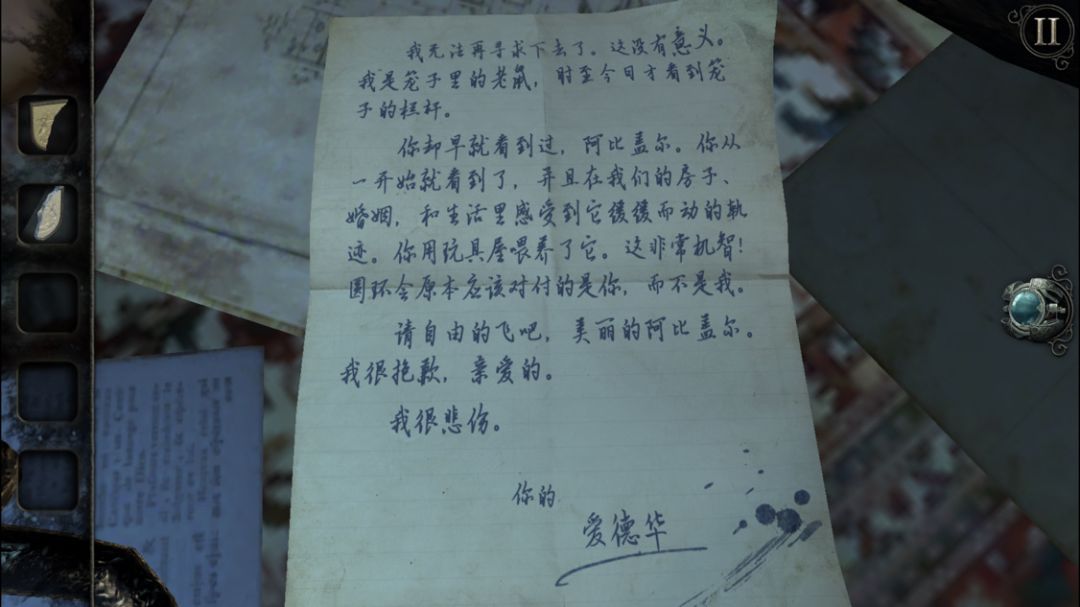 我无法再寻求下去了。这没有意义。
我是笼子里的老鼠，时至今日才看到笼
子的栏杆。
你却早就看到过，阿比盖尔。你从
一开始就看到了，并且在我们的房子、
婚姻，和生活里感受到它缓缓而动的轨
迹。你用玩具屋喂养了它。这非常机智！
圆环会原本应该对付的是你，而不是我。
请自由的飞吧，美丽的阿比盖尔。
我很抱歉，亲爱的。
我很悲伤。
你的
爱德华
II